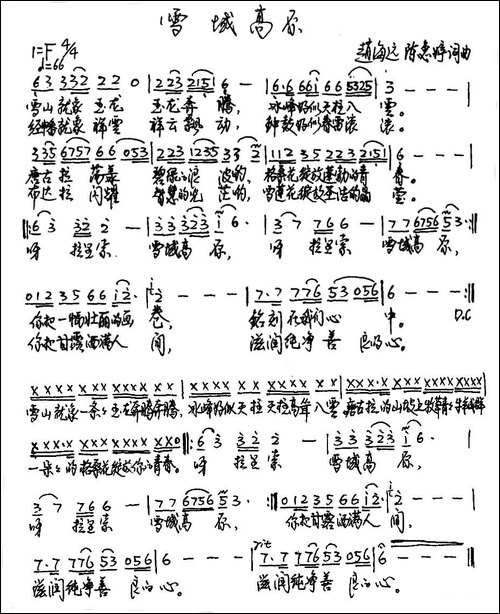 雪域高原
1=F 4/4
♩=66
赵海远 陈慧婷词曲
6 3 3 3 2 2 2 0 | 2 2 3 2 1 5 6 — | 6·6 6 6 1 6 6 5 3 2 5 | 3 — — — |
雪山就象 玉龙 玉龙奔腾, 冰峰好似天柱入云。
经幡就象 祥云 祥云飘动, 钟鼓好似春雷滚滚。
3 3 5 6 7 5 7 6 6 0 5 3 | 2 2 3 1 2 3 5 3 3 2 | 1 1 2 3 5 2 2 3 2 1 5 1 | 6 — — — |
唐古拉 碧绿的 波哟, 格桑花绽放 的青春。
布达拉 闪耀 智慧的光芒哟, 雪莲花绽放圣洁的晶莹。
‖: 6 3 3 2 2 — | 3 3 3 2 3 1 6 · | 3 7 7 6 6 — | 7 7 6 7 5 6 5 3 · |
呀 拉呈索 雪域高原, 呀 拉呈索 雪域高原,
0 1 2 3 5 6 6 1 2 · | 2 — — — | 7·7 7 7 6 5 3 0 5 6 | 6 — — — :‖
你把一幅壮丽的画卷, 铭刻在我们心中。 D.C
你把甘露洒满人间, 滋润纯净善良的心。
雪山就象一条条玉龙奔腾奔腾, 冰峰好似天柱天柱高耸入云 唐古拉的山坡上牧草青牛羊成群
一朵朵的格桑花绽放你的青春。 呀 拉呈索 雪域高原,
3 7 7 6 6 — | 7 7 6 7 5 6 5 3 · :‖ 0 1 2 3 5 6 6 1 2 · | 2 — — — |
呀 拉呈索 雪域高原, 你把甘露洒满人间,
7·7 7 7 6 5 3 0 5 6 | 6 — — — | 7·7 7 7 6 5 3 0 5 6 | 6 — — — ‖
滋润纯净善 良的心。 滋润纯净善 良的心。